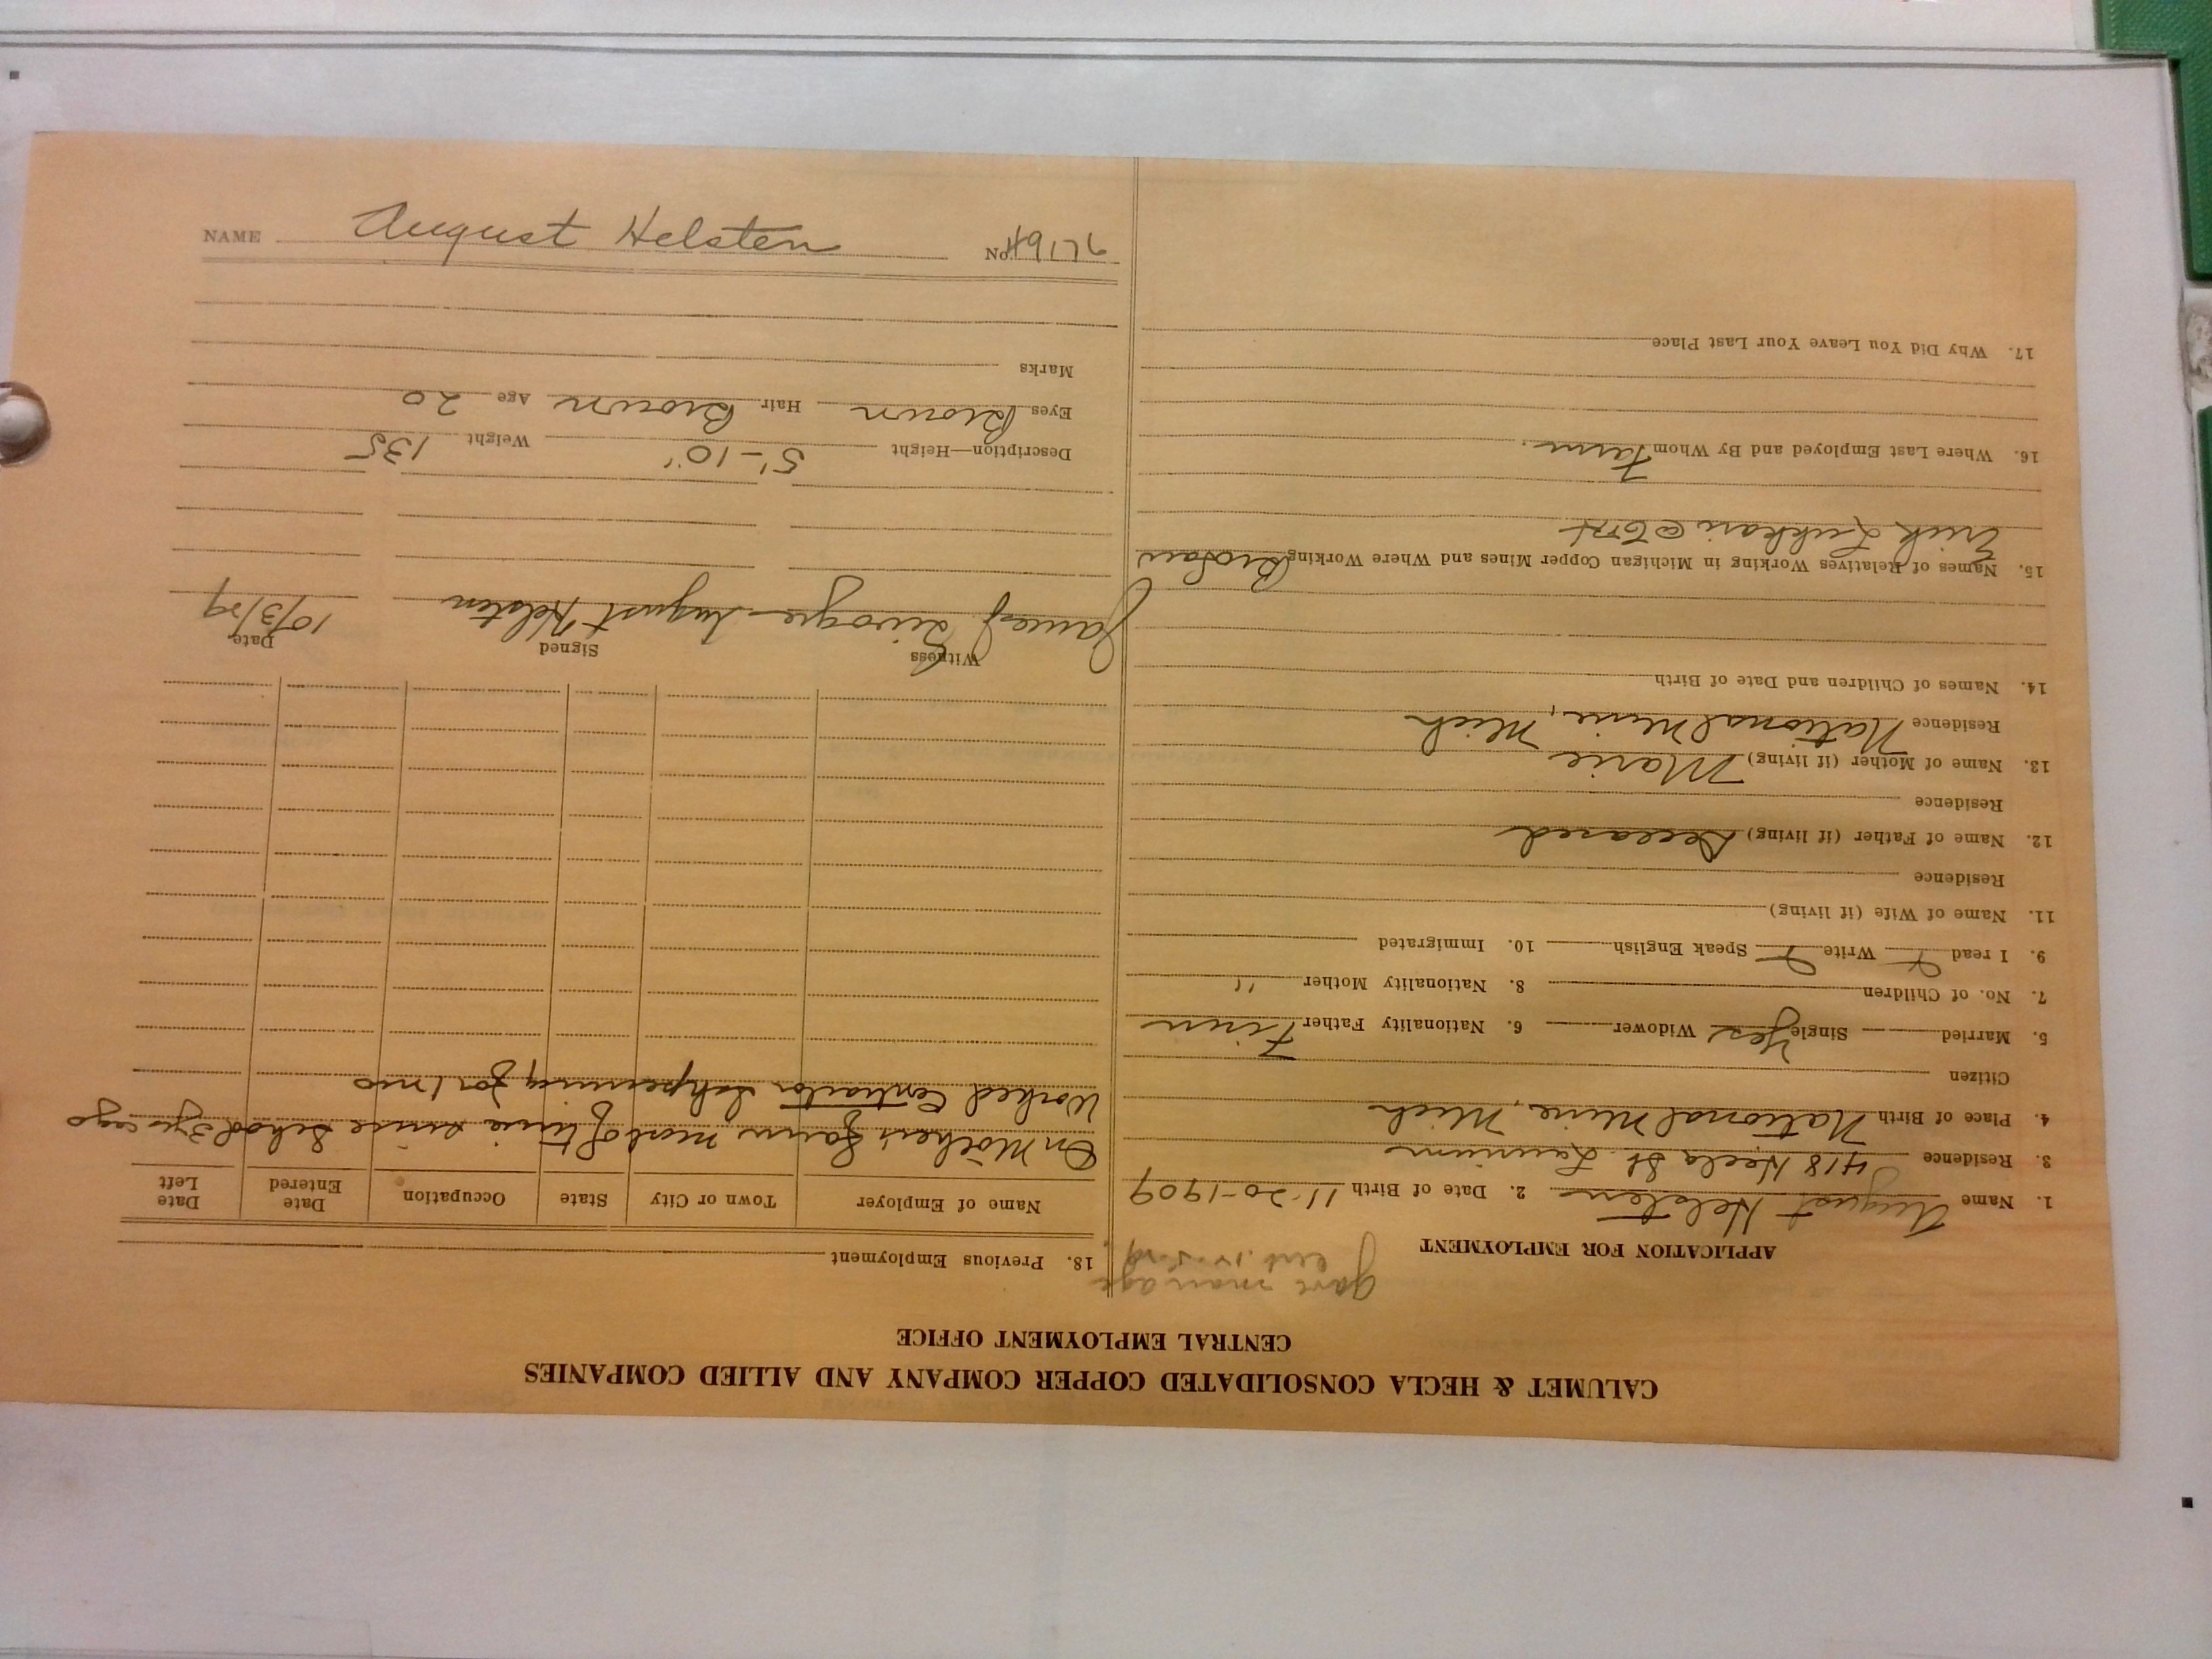 CALUMET & HECLA CONSOLIDATED COPPER COMPANY AND ALLIED COMPANIES
CENTRAL EMPLOYMENT OFFICE
APPLICATION FOR EMPLOYMENT
Gave man age
1. Name August Helsten 2. Date of Birth 11-20-1909
3. Residence 418 Hecla St. Laurium
4. Place of Birth National Mine, Mich
Citizen
5. Married Single Yes Widower 6. Nationality Father Finn
7. No. of Children 8. Nationality Mother "
9. I read Write Speak English 10. Immigrated
11. Name of Wife (if living)
Residence
12. Name of Father (if living) Deceased
Residence
13. Name of Mother (if living) Marie
Residence National Mine, Mich
14. Names of Children and Date of Birth
15. Names of Relatives Working in Michigan Copper Mines and Where Working
Erick
16. Where Last Employed and By Whom Farm.
17. Why Did You Leave Your Last Place
18. Previous Employment
Name of Employer Town or City State Occupation Date Entered Date Left
On Mother's farm most of time since school 3 yrs ago
Worked Contractor Ishpeming for 1 mo
Witness Signed Date
James August Helsten 10/3/29
Description—Height 5'-10" Weight 135
Eyes Brown Hair Brown Age 20
Marks
NAME August Helsten No.